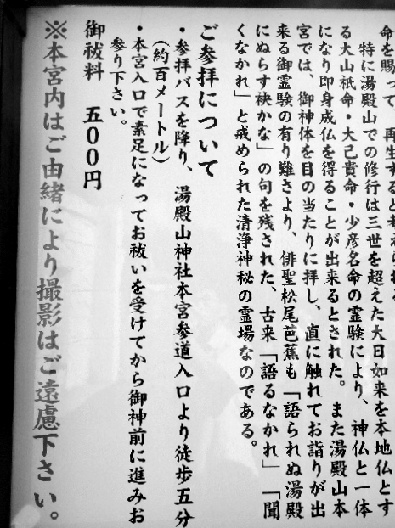 命を賜って、再生すると考えられる。
特に湯殿山での修行は三世を超えた大日如来を本地仏とす
る大山祇命・大己貴命・少彦名命の霊験により、神仏と一体
になり即身成仏を得ることが出来るとされた。また湯殿山本
宮では、御神体を目の当たりに拝し、直に触れてお詣りが出
来る御霊験の有り難さより、俳聖松尾芭蕉も「語られぬ湯殿
にぬらす袂かな」の句を残された、古来「語るなかれ」「聞
くなかれ」と戒められた清浄神秘の霊場なのである。
ご参拝について
・参拝バスを降り、湯殿山神社本宮参道入口より徒歩五分
（約百メートル）
・本宮入口で素足になってお祓いを受けてから御神前に進みお
参り下さい。
御祓料 五00円
※本宮内はご由緒により撮影はご遠慮下さい。